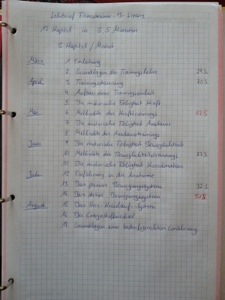 Lehrbrief Fitnesstrainer-B-Lizenz
17 Kapitel in 5,5 Monaten
3 Kapitel / Monat
März 1. Einleitung
2. Grundlagen der Trainingslehre
April 3. Trainingssteuerung
4. Aufbau einer Trainingseinheit
5. Die motorische Fähigkeit Kraft
Mai 6. Methodik des Krafttrainings
7. Die motorische Fähigkeit Ausdauer
8. Methodik des Ausdauertrainings
Juni 9. Die motorische Fähigkeit Beweglichkeit
10. Methodik des Beweglichkeitstrainings
11. Die motorische Fähigkeit Koordination
Juli 12. Einführung in die Anatomie
13. Das passive Bewegungssystem
14. Das aktive Bewegungssystem
August 15. Das Herz-Kreislauf-System
16. Der Energiestoffwechsel
17. Grundlagen einer bedarfsgerechten Ernährung